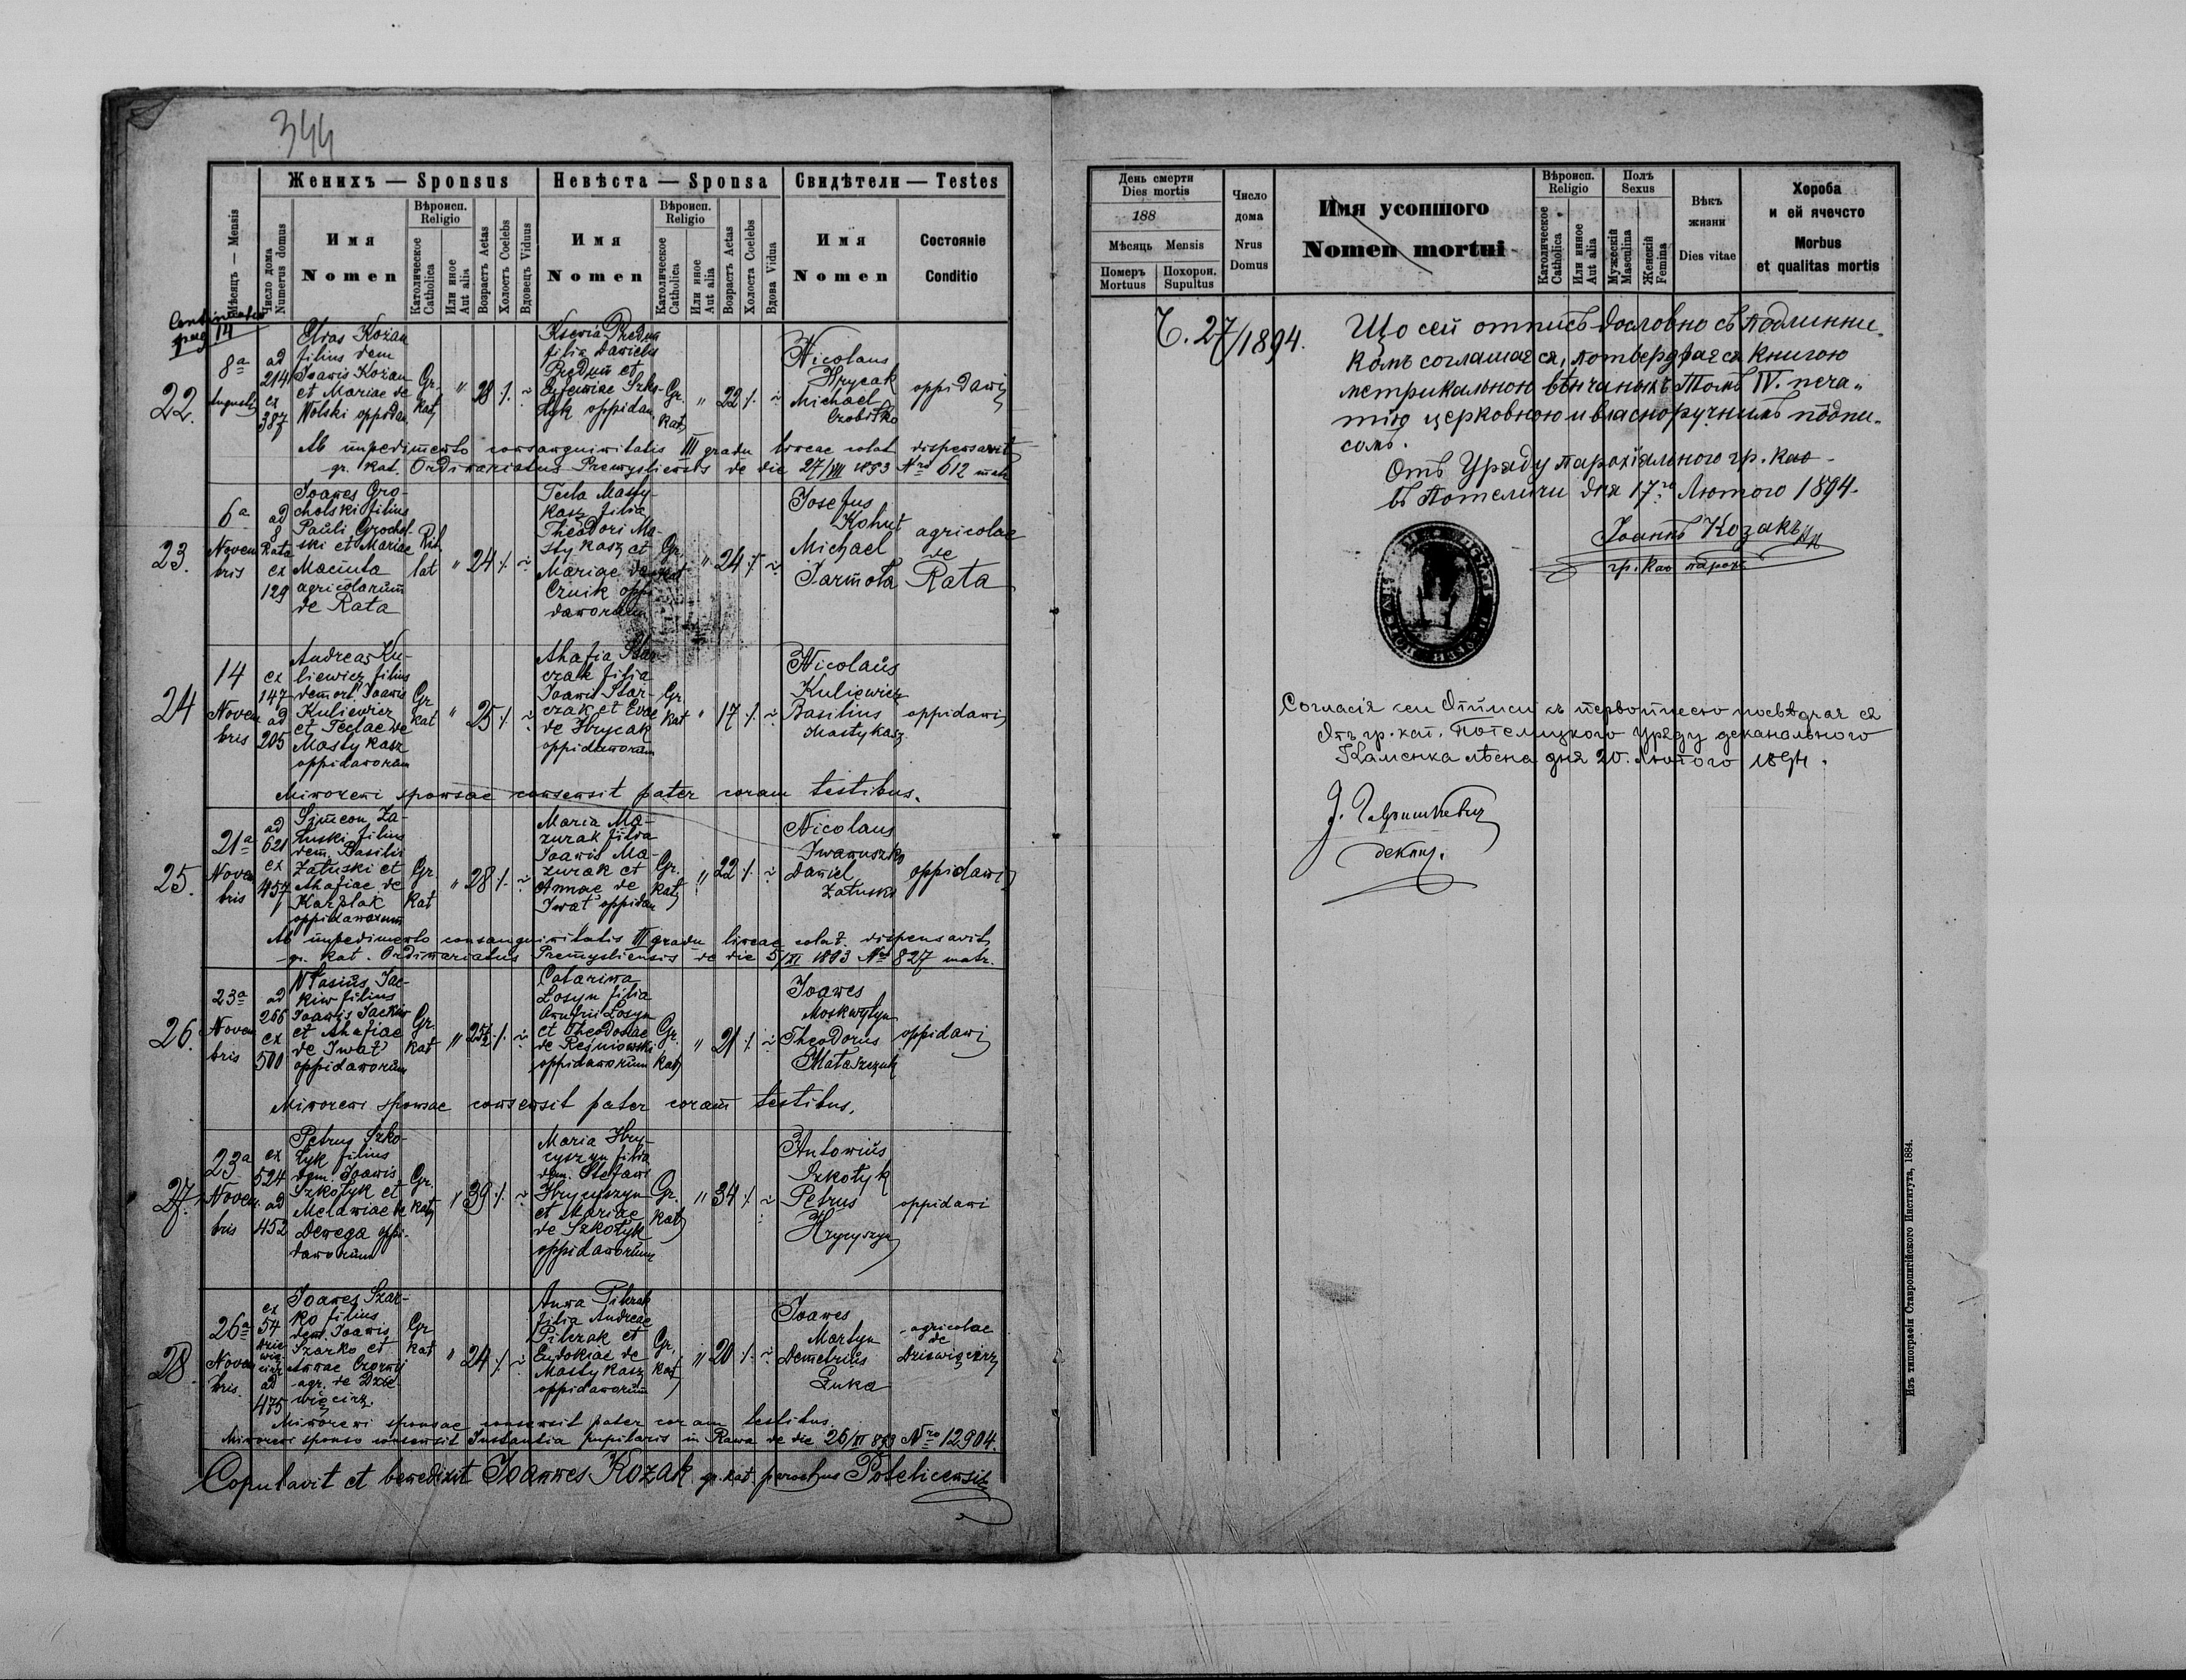 344
Женихъ — Sponsus
Невѣста — Sponsa
Свидѣтели — Testes
Мѣсяцъ — Mensis
Число дома
Numerus domus
Имя
Nomen
Вѣроисп.
Religio
Католическое
Catholica
Или инное
Aut alia
Возрастъ Aetas
Холостъ Coelebs
Вдовецъ Viduus
Имя
Nomen
Вѣроисп.
Religio
Католическое
Catholica
Или инное
Aut alia
Возрастъ Aetas
Холоста Coelebs
Вдова Vidua
Имя
Nomen
Состояніе
Conditio
pag 14
22.
8a
Augusti
ad
214
ex
387
Kozan
filius dem
Ioanis Kozan
et Mariae de
Wolski oppidan
Gr.
kat
"
28
filia Danielis
Predum et
Eufemiae Szko-
łyk oppidan
Gr.
kat
"
22
Nicolaus
Hrycak
Michael
oppidani
Ab impedimento consanguinitatis III gradu lineae colat dispensavit
gr. kat. Ordinariatus Premysliensis de die 27/VII 1893 Nro 612
23.
6a
Novem
bris
ad
8
Rata
ex
129
Joanes Gro-
cholski filius
Pauli Grochol-
ski et Mariae
Maciuta
agricolarum
de Rata
Rit.
lat
"
24
Tecla Masty-
kasz filia
Theodori Ma-
stykasz et
Mariae de
oppi-
danorum
Gr.
"
24
Josefus
Kohut
Michael
Jarmoła
agricolae
de
Rata
24
14
Novem
bris
ex
147
ad
205
Andreas Ku-
liewicz filius
demort Joanis
Kuliewicz
et Teclae de
Mastykasz
oppidanorum
Gr
kat
"
25
Ahafia Star-
czak filia
Joanis Star-
czak et Evae
de Hrycak
oppidanorum
Gr.
kat
"
17
Nicolaus
Kuliewicz
Basilius
Mastykasz
oppidani
Minoreni sponsae consensit pater coram testibus.
25.
21a
Novem
bris
ad
621
ex
457
Simeon Za-
łuski filius
dem. Basilii
Załuski et
Ahafiae de
Karplak
oppidanorum
Gr.
kat
"
28
Maria Ma-
zurak filia
Joanis Ma-
zurak et
Annae de
Iwat oppidan
Gr.
kat
"
22
Nicolaus
Iwanuszko
Daniel
Załuski
oppidani
Ab impedimento consanguinitatis III gradu lineae colat. dispensavit
gr. kat. Ordinariatus Premysliensis de die 5/XI 1893 Nro 827 matr.
26.
23a
Novem
bris
ad
266
ex
500
Jac-
kiw filius
Joanis Jackiw
et Ahafiae
de Iwat
oppidanorum
Gr.
kat
"
Catarina
Łosyn filia
Onufrii Łosyn
et Theodosiae
de Reśniowski
oppidanorum
Gr.
kat
"
21
Joanes
Moskwytyn
Theodorus
Mataszczuk
oppidani
Minoreni sponsae consensit pater coram testibus.
27.
23a
Novem
bris
ex
524
ad
452
Petrus Szko-
łyk filius
dem. Joanis
Szkołyk et
Melaniae de
Denega oppi-
danorum
Gr.
kat
"
39
Maria Hry-
cyszyn filia
dem. Stefani
Hrycyszyn
et Mariae
de Szkołyk
oppidanorum
Gr.
kat
"
34
Antonius
Szkołyk
Petrus
Hrycyszyn
oppidani
28.
26a
Novem
bris
ex
54
ad
475
Joanes Szar-
ko filius
dem. Joanis
Szarko et
Annae Czornij
agr. de Dzie-
więcirz.
Gr
kat
"
24
Anna Pilczak
filia Andreae
Pilczak et
Eudokiae de
Mastykasz
oppidanorum
Gr.
kat
"
20
Joanes
Martyn
Demetrius
Łuka
agricolae
de
Dziewięcirz
Minoreni sponsae consensit pater coram testibus.
Minoreni sponso consensit Instantia pupilaris in Rawa de die 26/XI 893 Nro 12904.
Copulavit et benedixit Joannes Kozak gr. kat. parochus Potelicensis
День смерти
Dies mortis
188
Мѣсяцъ Mensis
Померъ
Mortuus
Похорон.
Supultus
Число
дома
Nrus
Domus
Имя усопшого
Nomen mortui
Вѣроисп.
Religio
Католическое
Catholica
Или инное
Aut alia
Полъ
Sexus
Мужескій
Masculina
Женскій
Femina
Вѣкъ
жизни
Dies vitae
Хороба
и ей ячечсто
Morbus
et qualitas mortis
Ч. 27/1894.
Що сей отписъ дословно съ подлинни-
комъ соглашаєся, потверджаєся книгою
метрикальною вѣнчаныхъ Томъ IV. печа-
тію церковною и власноручнымъ подпи-
сомъ.
Отъ Уряду парохіяльного гр. као
въ Потеличи дня 17го Лютого 1894.
Іоаннъ Козакъ
гр. као парохъ
Согласія сеи Отписи съ первописею посвѣдчає ся
Отъ гр. кат. Потелицкого Уряду деканального
Каменка лѣсна дня 20. лютого 1894.
Изъ типографіи Ставропигійского Института, 1884.